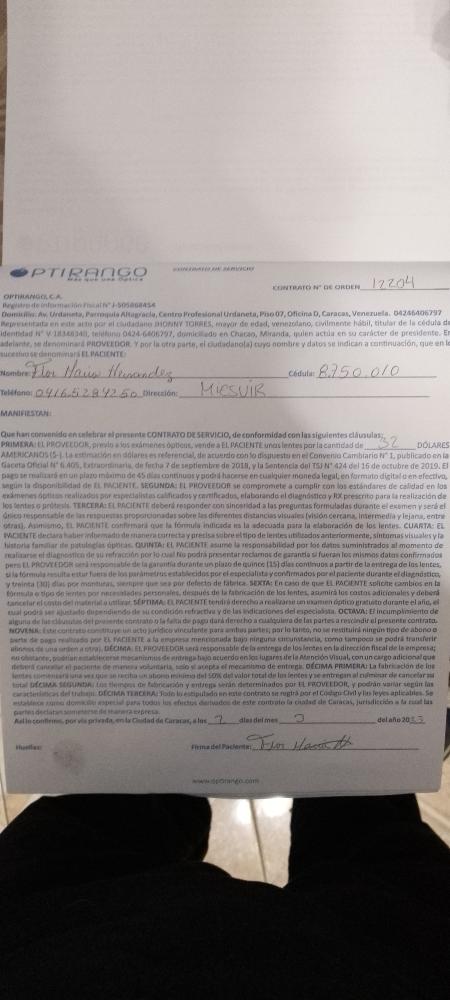 OPTIRANGO
Más que una Óptica
CONTRATO DE SERVICIO
CONTRATO N° DE ORDEN 12204
OPTIRANGO, C.A.
Registro de Información Fiscal N° J-505868454
Domicilio: Av. Urdaneta, Parroquia Altagracia, Centro Profesional Urdaneta, Piso 07, Oficina D, Caracas, Venezuela. 04246406797
Representada en este acto por el ciudadano JHONNY TORRES, mayor de edad, venezolano, civilmente hábil, titular de la cédula de
identidad N° V-18348340, teléfono 0424-6406797, domiciliado en Chacao, Miranda, quien actúa en su carácter de presidente. En
adelante, se denominará PROVEEDOR. Y por la otra parte, el ciudadano(a) cuyo nombre y datos se indican a continuación, que en lo
sucesivo se denominará EL PACIENTE:
Nombre: Flor Maria Hernandez Cédula: 8.750.010
Teléfono: 04165284250 Dirección: MICSUIR
MANIFIESTAN:
Que han convenido en celebrar el presente CONTRATO DE SERVICIO, de conformidad con las siguientes cláusulas:
PRIMERA: EL PROVEEDOR, previo a los exámenes ópticos, vende a EL PACIENTE unos lentes por la cantidad de 32 DÓLARES
AMERICANOS ($-). La estimación en dólares es referencial, de acuerdo con lo dispuesto en el Convenio Cambiario N° 1, publicado en la
Gaceta Oficial N° 6.405, Extraordinaria, de fecha 7 de septiembre de 2018, y la Sentencia del TSJ N° 424 del 16 de octubre de 2019. El
pago se realizará en un plazo máximo de 45 días continuos y podrá hacerse en cualquier moneda legal, en formato digital o en efectivo,
según la disponibilidad de EL PACIENTE. SEGUNDA: EL PROVEEDOR se compromete a cumplir con los estándares de calidad en los
exámenes ópticos realizados por especialistas calificados y certificados, elaborando el diagnóstico y RX prescrito para la realización de
los lentes o prótesis. TERCERA: EL PACIENTE deberá responder con sinceridad a las preguntas formuladas durante el examen y será el
único responsable de las respuestas proporcionadas sobre las diferentes distancias visuales (visión cercana, intermedia y lejana, entre
otras). Asimismo, EL PACIENTE confirmará que la fórmula indicada es la adecuada para la elaboración de los lentes. CUARTA: EL
PACIENTE declara haber informado de manera correcta y precisa sobre el tipo de lentes utilizados anteriormente, síntomas visuales y la
historia familiar de patologías ópticas. QUINTA: EL PACIENTE asume la responsabilidad por los datos suministrados al momento de
realizarse el diagnóstico de su refracción por lo cual No podrá presentar reclamos de garantía si fueran los mismos datos confirmados
pero EL PROVEEDOR será responsable de la garantía durante un plazo de quince (15) días continuos a partir de la entrega de los lentes,
si la fórmula resulta estar fuera de los parámetros establecidos por el especialista y confirmados por el paciente durante el diagnóstico,
y treinta (30) días por monturas, siempre que sea por defecto de fábrica. SEXTA: En caso de que EL PACIENTE solicite cambios en la
fórmula o tipo de lentes por necesidades personales, después de la fabricación de los lentes, asumirá los costos adicionales y deberá
cancelar el costo del material a utilizar. SÉPTIMA: EL PACIENTE tendrá derecho a realizarse un examen óptico gratuito durante el año, el
cual podrá ser ajustado dependiendo de su condición refractiva y de las indicaciones del especialista. OCTAVA: El incumplimiento de
alguna de las cláusulas del presente contrato o la falta de pago dará derecho a cualquiera de las partes a rescindir el presente contrato.
NOVENA: Este contrato constituye un acto jurídico vinculante para ambas partes; por lo tanto, no se restituirá ningún tipo de abono o
parte de pago realizado por EL PACIENTE a la empresa mencionada bajo ninguna circunstancia, como tampoco se podrá transferir
abonos de una orden a otra). DÉCIMA: EL PROVEEDOR será responsable de la entrega de los lentes en la dirección fiscal de la empresa;
no obstante, podrían establecerse mecanismos de entrega bajo acuerdo en los lugares de la Atención Visual, con un cargo adicional que
deberá cancelar el paciente de manera voluntaria, solo si acepta el mecanismo de entrega. DÉCIMA PRIMERA: La fabricación de los
lentes comenzará una vez que se reciba un abono mínimo del 50% del valor total de los lentes y se entregan al culminar de cancelar su
total DÉCIMA SEGUNDA: Los tiempos de fabricación y entrega serán determinados por EL PROVEEDOR, y podrán variar según las
características del trabajo. DÉCIMA TERCERA: Todo lo estipulado en este contrato se regirá por el Código Civil y las leyes aplicables. Se
establece como domicilio especial para todos los efectos derivados de este contrato la ciudad de Caracas, jurisdicción a la cual las
partes declaran someterse de manera expresa.
Así lo confirmo, por vía privada, en la Ciudad de Caracas, a los 7 días del mes del año 20
Huellas: Firma del Paciente: Flor Maria H
www.optirango.com